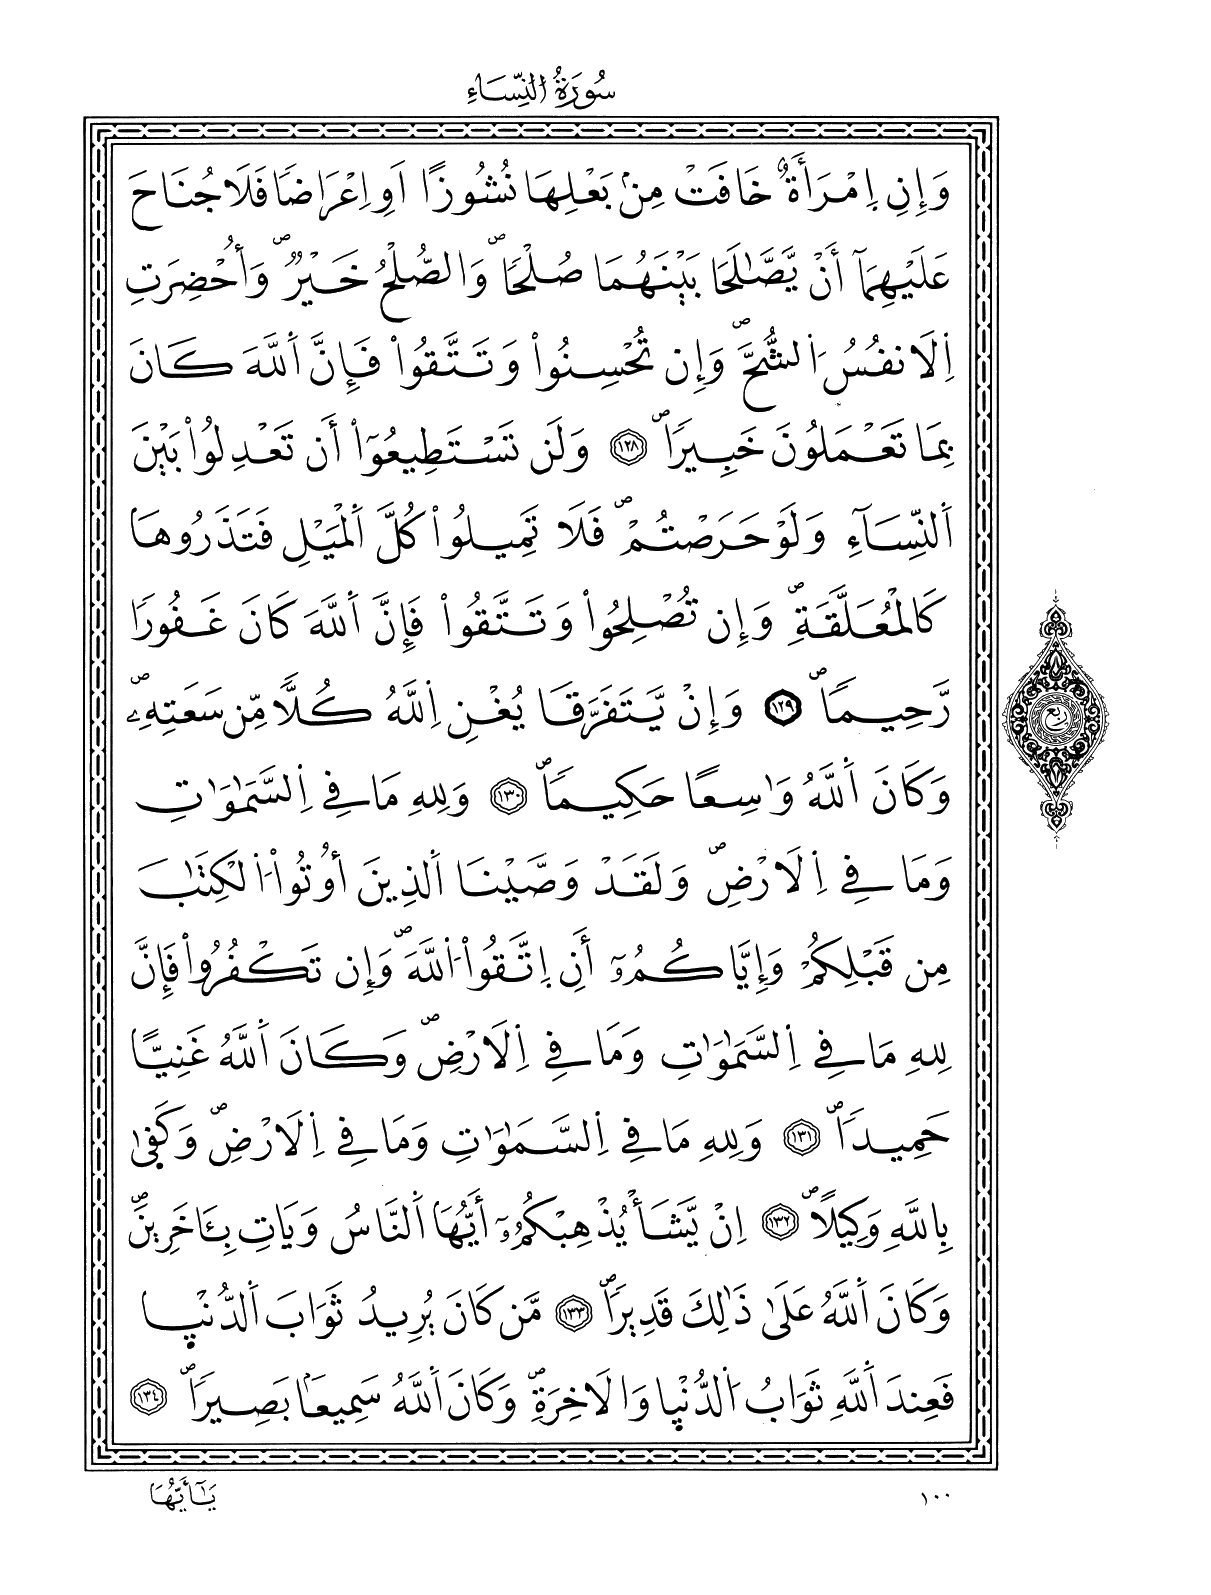 سُورَةُ النِّسَاءِ
وَإِنِ اِمْرَأَةٌ خَافَتْ مِنۢ بَعْلِهَا نُشُوزًا اَوِ اِعْرَاضًا فَلَا جُنَاحَ
عَلَيْهِمَآ أَنْ يَّصَّٰلَحَا بَيْنَهُمَا صُلْحًا ۖ وَالصُّلْحُ خَيْرٌ ۖ وَأُحْضِرَتِ
اِلَانفُسُ اُلشُّحَّ ۖ وَإِن تُحْسِنُواْ وَتَتَّقُواْ فَإِنَّ اَللَّهَ كَانَ
بِمَا تَعْمَلُونَ خَبِيرًا ۖ ١٢٨ وَلَن تَسْتَطِيعُوٓاْ أَن تَعْدِلُواْ بَيْنَ
اَلنِّسَآءِ وَلَوْ حَرَصْتُمْ ۖ فَلَا تَمِيلُواْ كُلَّ اَلْمَيْلِ فَتَذَرُوهَا
كَالْمُعَلَّقَةِ ۖ وَإِن تُصْلِحُواْ وَتَتَّقُواْ فَإِنَّ اَللَّهَ كَانَ غَفُورًا
رَّحِيمًا ۖ ١٢٩ وَإِنْ يَّتَفَرَّقَا يُغْنِ اِللَّهُ كُلًّا مِّن سَعَتِهِۦ ۖ
وَكَانَ اَللَّهُ وَٰسِعًا حَكِيمًا ۖ ١٣٠ وَلِلهِ مَا فِے اِلسَّمَٰوَٰتِ
وَمَا فِے اِلَارْضِ ۖ وَلَقَدْ وَصَّيْنَا اَلذِينَ أُوتُواْ اُلْكِتَٰبَ
مِن قَبْلِكُمْ وَإِيَّاكُمُۥٓ أَنِ اِتَّقُواْ اُللَّهَ ۖ وَإِن تَكْفُرُواْ فَإِنَّ
لِلهِ مَا فِے اِلسَّمَٰوَٰتِ وَمَا فِے اِلَارْضِ ۖ وَكَانَ اَللَّهُ غَنِيًّا
حَمِيدًا ۖ ١٣١ وَلِلهِ مَا فِے اِلسَّمَٰوَٰتِ وَمَا فِے اِلَارْضِ ۖ وَكَفَىٰ
بِاللَّهِ وَكِيلًا ۖ ١٣٢ اِنْ يَّشَأْ يُذْهِبْكُمُۥٓ أَيُّهَا اَلنَّاسُ وَيَاتِ بِـَٔاخَرِينَ ۖ
وَكَانَ اَللَّهُ عَلَىٰ ذَٰلِكَ قَدِيرًا ۖ ١٣٣ مَّن كَانَ يُرِيدُ ثَوَابَ اَلدُّنْيِا
فَعِندَ اَللَّهِ ثَوَابُ اُلدُّنْيِا وَالَاخِرَةِ ۖ وَكَانَ اَللَّهُ سَمِيعًا بَصِيرًا ۖ ١٣٤
ربع
١٠٠
يَٰٓأَيُّهَا